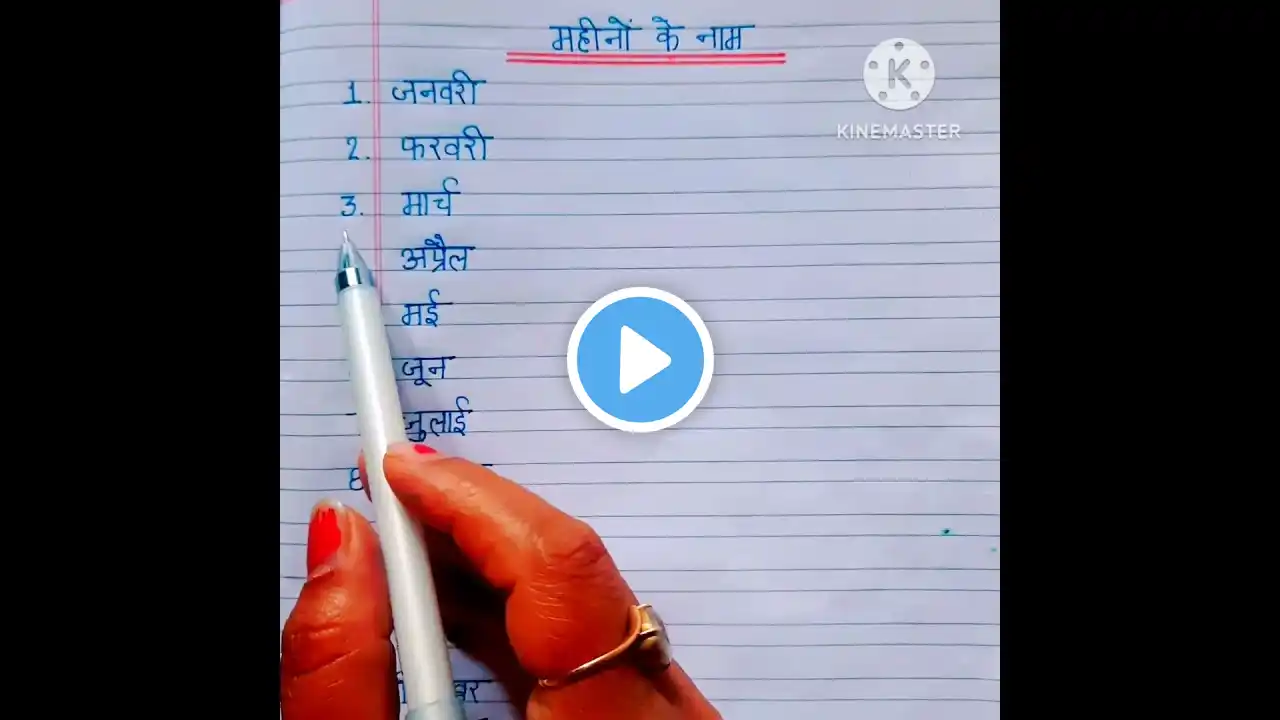 महीनों के नाम
1. जनवरी
2. फरवरी
3. मार्च
अप्रैल
मई
जून
जुलाई
8
KINEMASTER